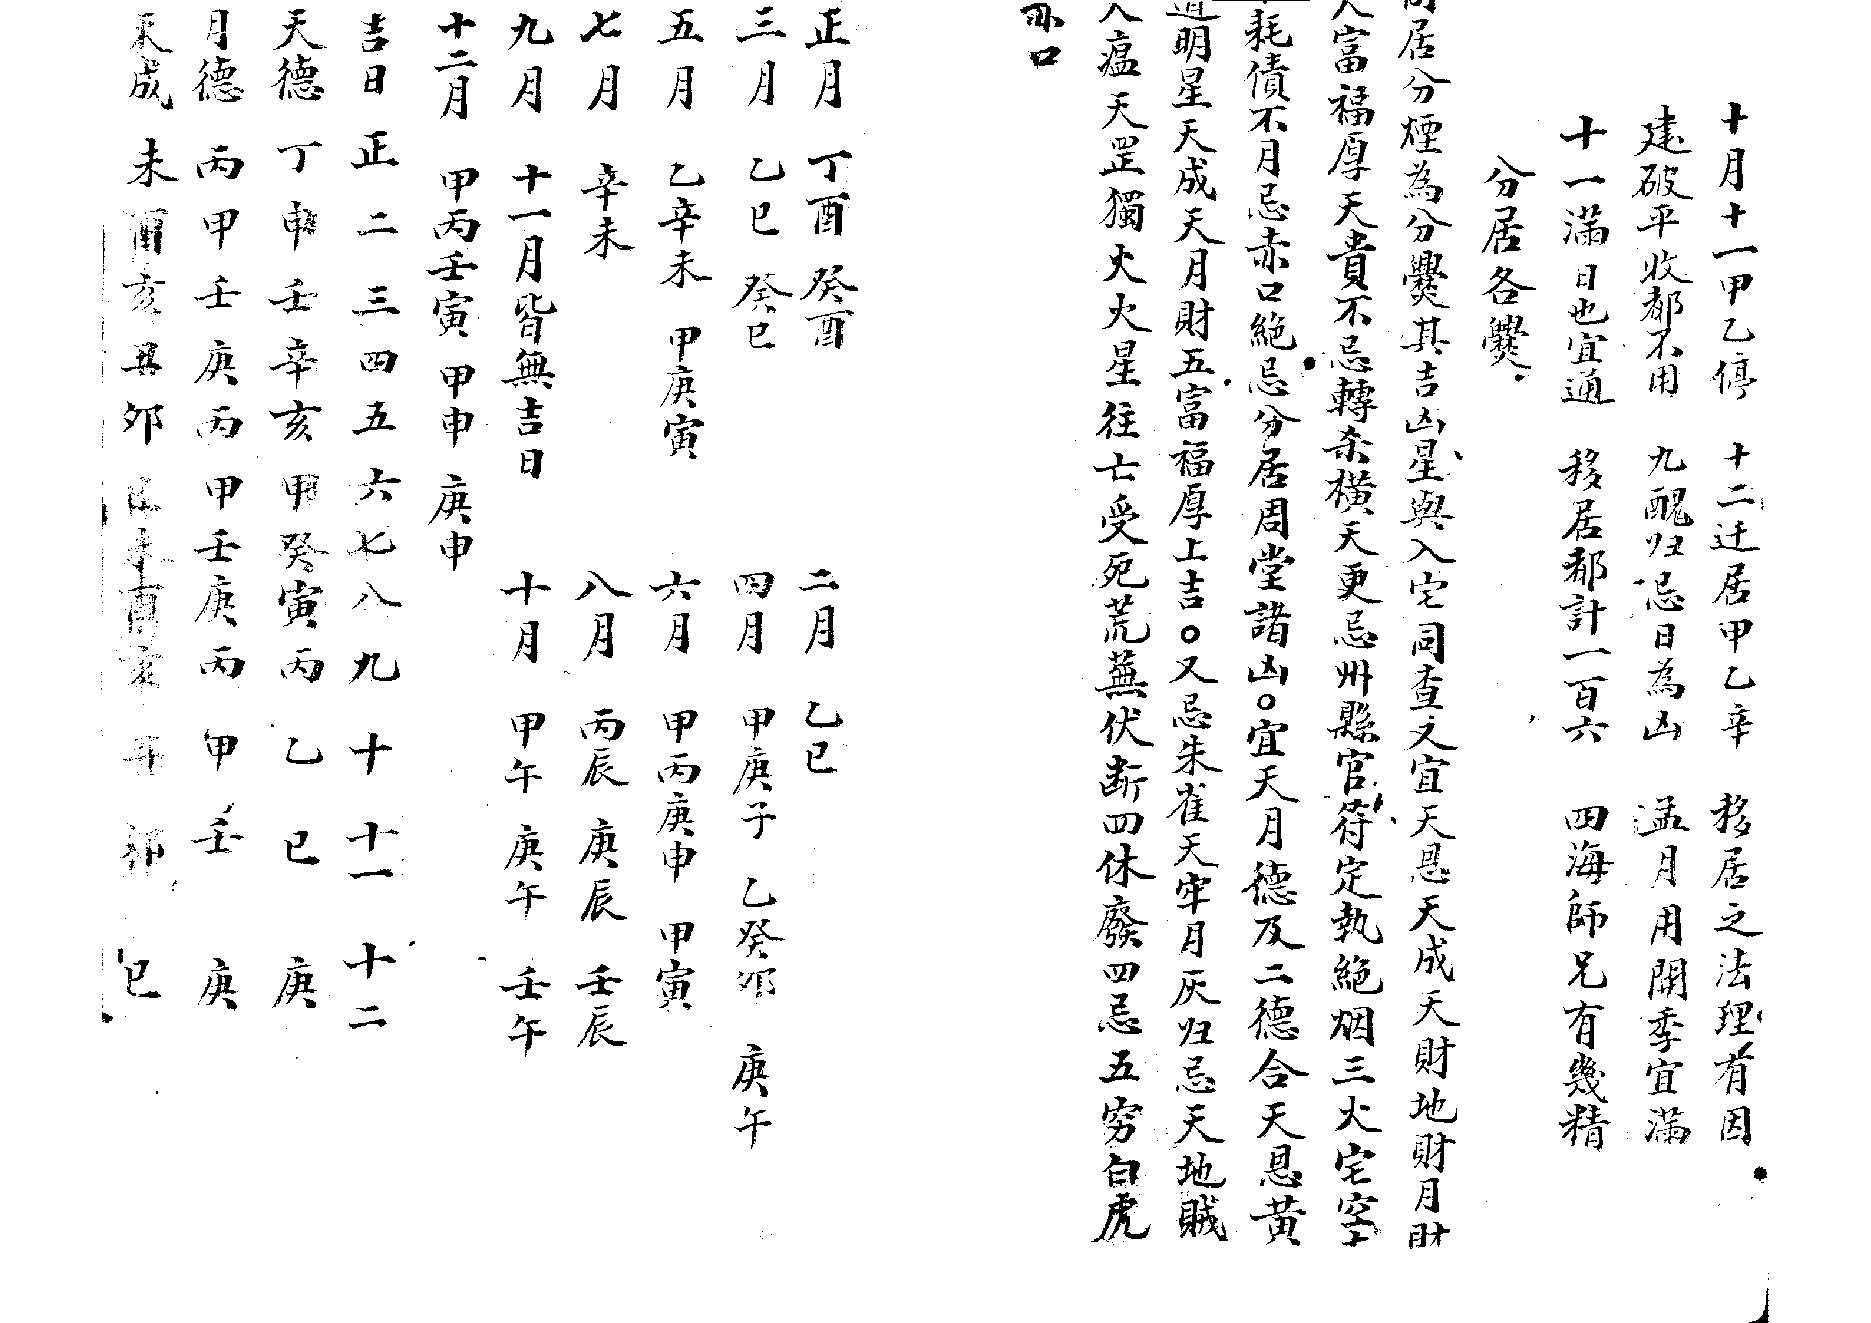 十月十一甲乙停　十二迁居甲乙辛　移居之法理有因
建破平收都不用　九醜归忌日為凶　孟月用開季宜满
十一满日也宜通　移居都計一百六　四海師兄有幾精
分居各爨
居分煙為分爨其吉凶星與入宅同查又宜天恩天成天財地財月財
富福厚天貴不忌轉杀横天更忌州縣官符定執絶烟三火宅空
耗債不月忌赤口絶忌分居周堂諸凶。宜天月德及二德合天恩黄
道明星天成天月財五富福厚上吉。又忌朱雀天牢月灰归忌天地賊
瘟天罡獨火火星往亡受死荒蕪伏断四休廢四忌五穷白虎
赤口
正月　丁酉　癸酉　二月　乙巳
三月　乙巳　癸巳　四月　甲庚子　乙癸卯　庚午
五月　乙辛未　甲庚寅　六月　甲丙庚申　甲寅
七月　辛未　八月　丙辰　庚辰　壬辰
九月　十一月皆無吉日　十月　甲午　庚午　壬午
十二月　甲丙壬寅　甲申　庚申
吉日　正　二　三　四　五　六　七　八　九　十　十一　十二
天德　丁　申　壬　辛　亥　甲　癸　寅　丙　乙　巳　庚
月德　丙　甲　壬　庚　丙　甲　壬　庚　丙　甲　壬　庚
天成　未　酉　亥　丑　卯　未　酉　亥　丑　卯　巳